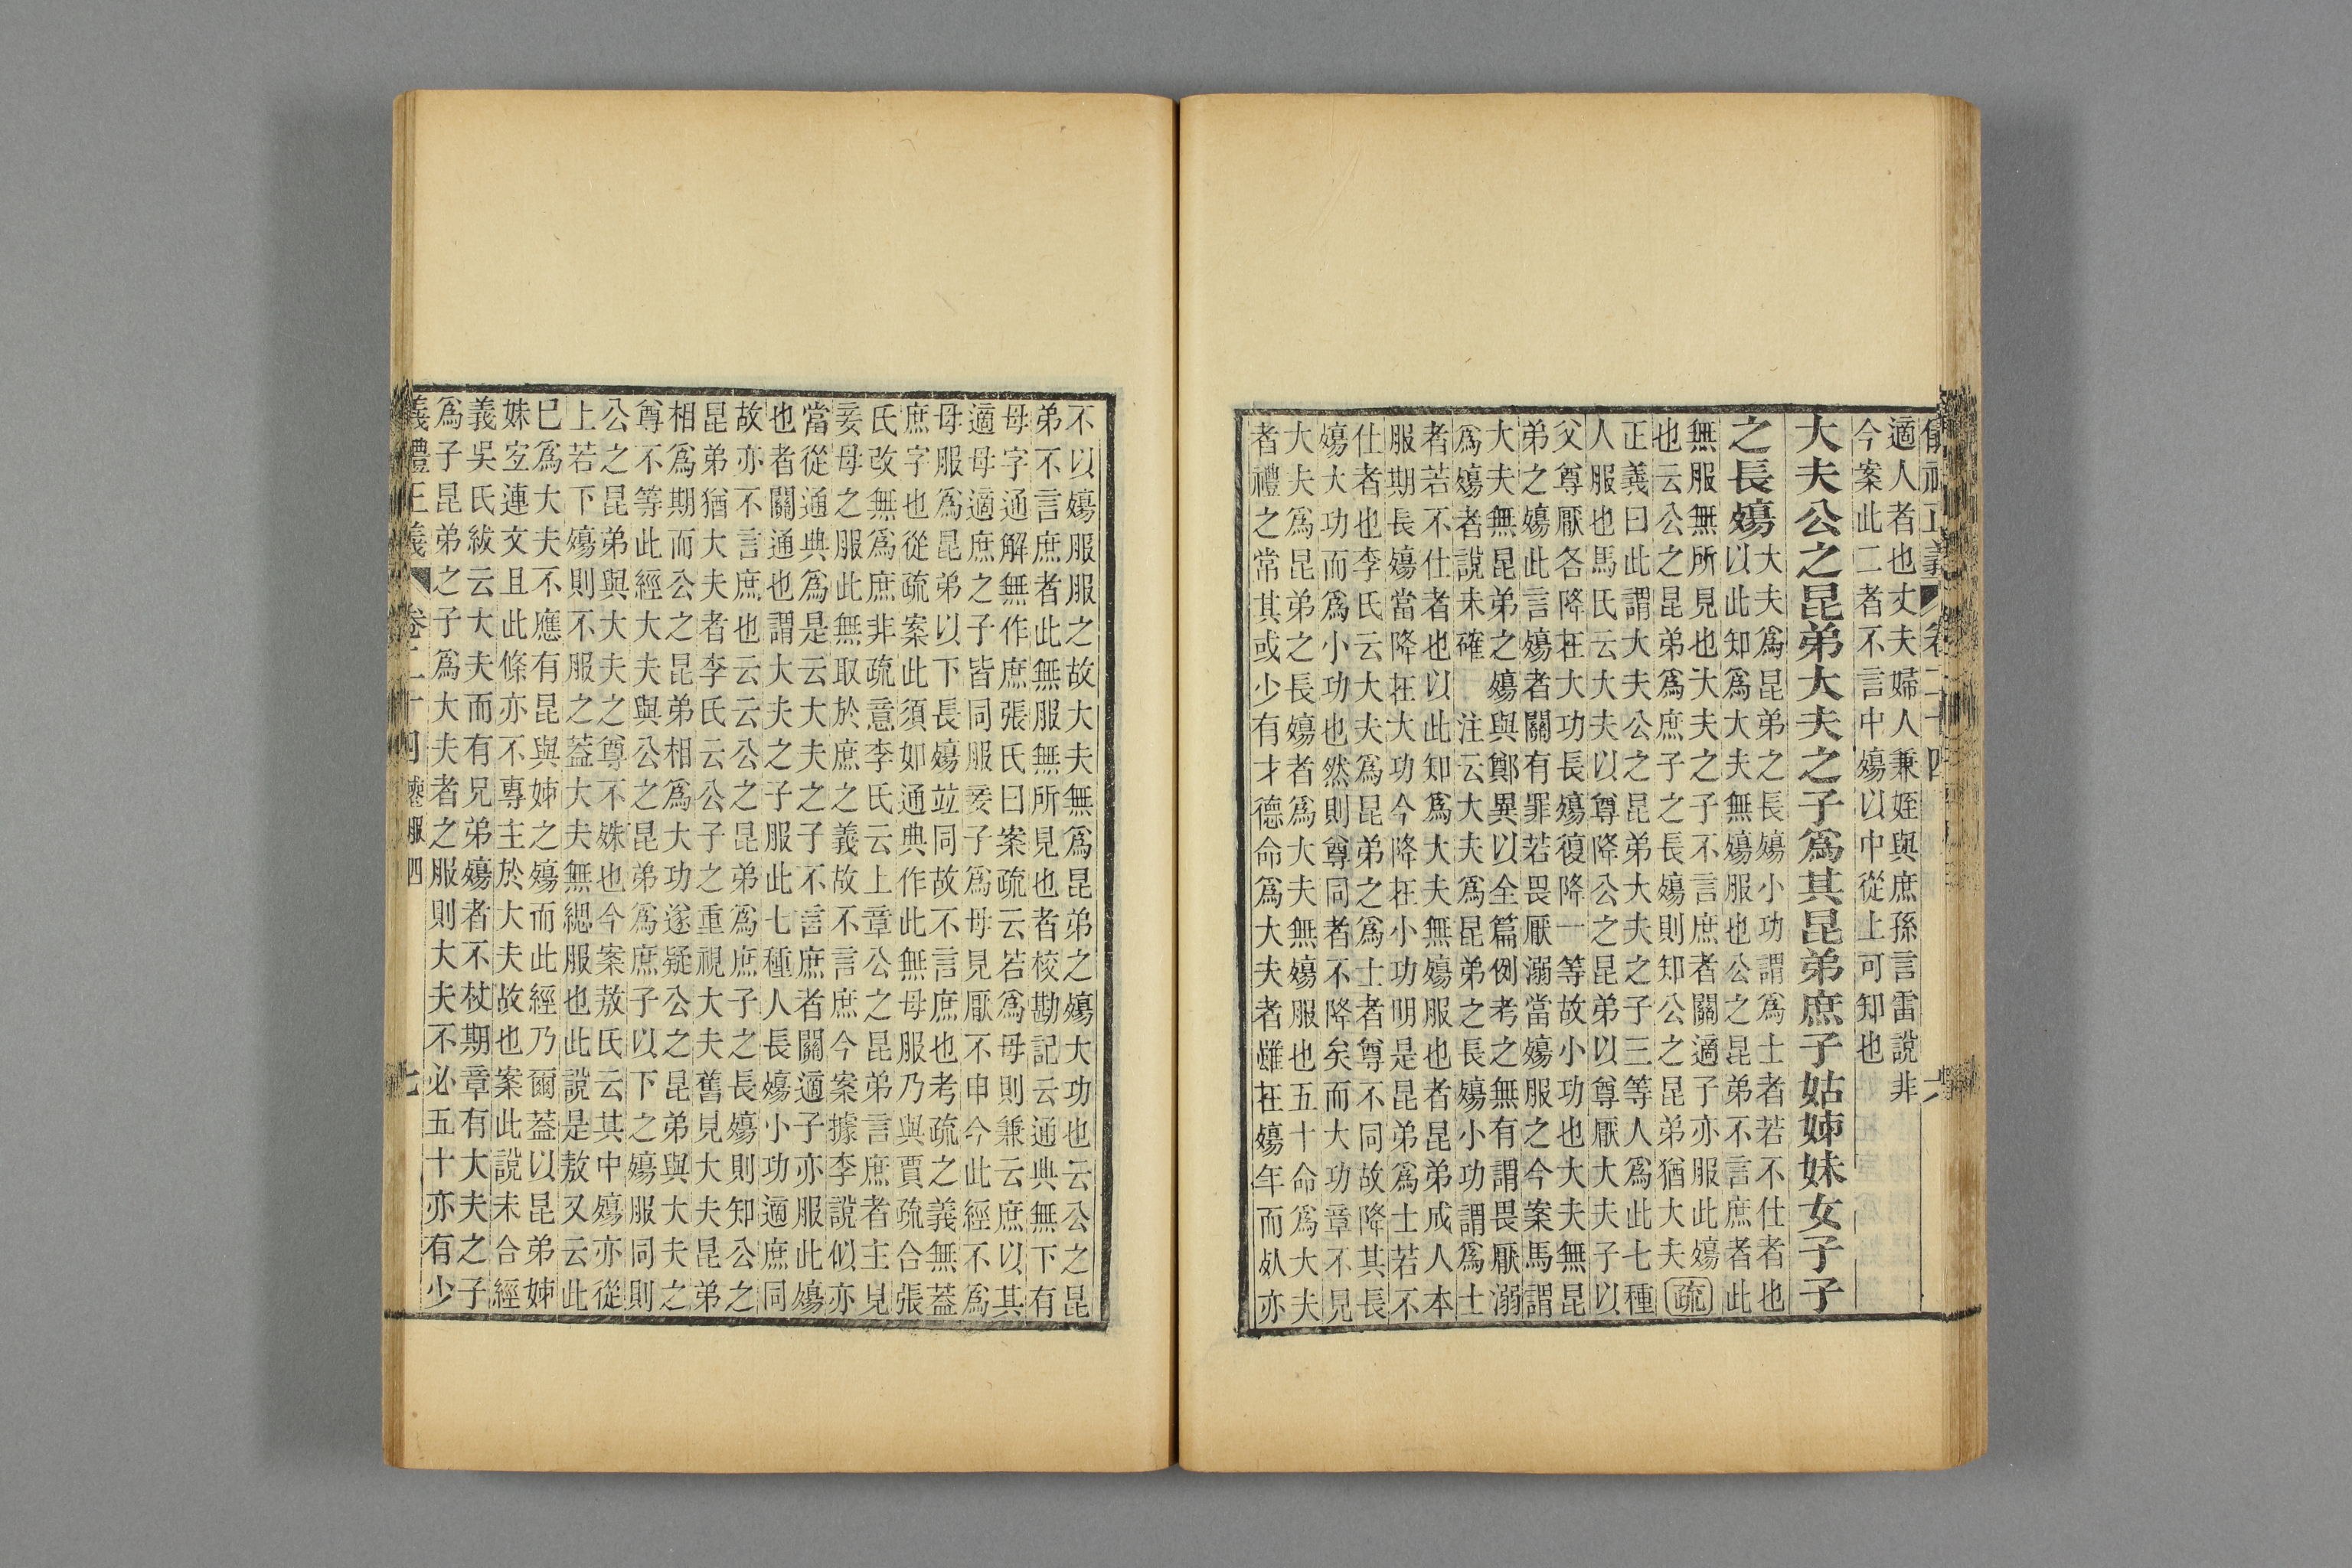 適人者也丈夫婦人兼姪與庶孫言雷說非
今案此二者不言中殤以中從上可知也
大夫公之昆弟大夫之子爲其昆弟庶子姑姊妹女子子
之長殤
大夫爲昆弟之長殤小功謂爲士者若不仕者也
以此知爲大夫無殤服也公之昆弟不言庶者此
無服無所見也大夫之子不言庶者關適子亦服此殤
也云公之昆弟爲庶子之長殤則知公之昆弟猶大夫疏
正義曰此謂大夫公之昆弟大夫之子三等人爲此七種
人服也馬氏云大夫以尊降公之昆弟以尊厭大夫子以
父尊厭各降在大功長殤復降一等故小功也大夫無昆
弟之殤此言殤者關有罪若畏厭溺當殤服之今案馬謂
大夫無昆弟之殤與鄭異以全篇例考之無有謂畏厭溺
爲殤者說未確 注云大夫爲昆弟之長殤小功謂爲士
者若不仕者也以此知爲大夫無殤服也者昆弟成人本
服期長殤當降在大功今降在小功明是昆弟爲士若不
仕者也李氏云大夫爲昆弟之爲士者尊不同故降其長
殤大功而爲小功也然則尊同者不降矣而大功章不見
大夫爲昆弟之長殤者爲大夫無殤服也五十命爲大夫
者禮之常其或少有才德命爲大夫者雖在殤年而死亦
不以殤服服之故大夫無爲昆弟之殤大功也云公之昆
弟不言庶者此無服無所見也者校勘記云通典無下有
母字通解無作庶張氏曰案疏云若爲母則兼云庶以其
適母適庶之子皆同服妾子爲母見厭不申今此經不爲
母服爲昆弟以下長殤竝同故不言庶也考疏之義無蓋
庶字也從疏案此須如通典作此無母服乃與賈疏合張
氏改無爲庶非疏意李氏云上章公之昆弟言庶者主見
妾母之服此無取於庶之義故不言庶今案據李說似亦
當從通典爲是云大夫之子不言庶者關適子亦服此殤
也者關通也謂大夫之子服此七種人長殤小功適庶同
故亦不言庶也云云公之昆弟爲庶子之長殤則知公之
昆弟猶大夫者李氏云公子之重視大夫舊見大夫昆弟
相爲期而公之昆弟相爲大功遂疑公之昆弟與大夫之
尊不等此經大夫與公之昆弟爲庶子以下之殤服同則
公之昆弟與大夫之尊不殊也今案敖氏云其中殤亦從
上若下殤則不服之蓋大夫無緦服也此說是敖又云此
已爲大夫不應有昆與姊之殤而此經乃爾蓋以昆弟姊
妹宜連文且此條亦不專主於大夫故也案此說未合經
義吳氏紱云大夫而有兄弟殤者不杖期章有大夫之子
爲子昆弟之子爲大夫者之服則大夫不必五十亦有少